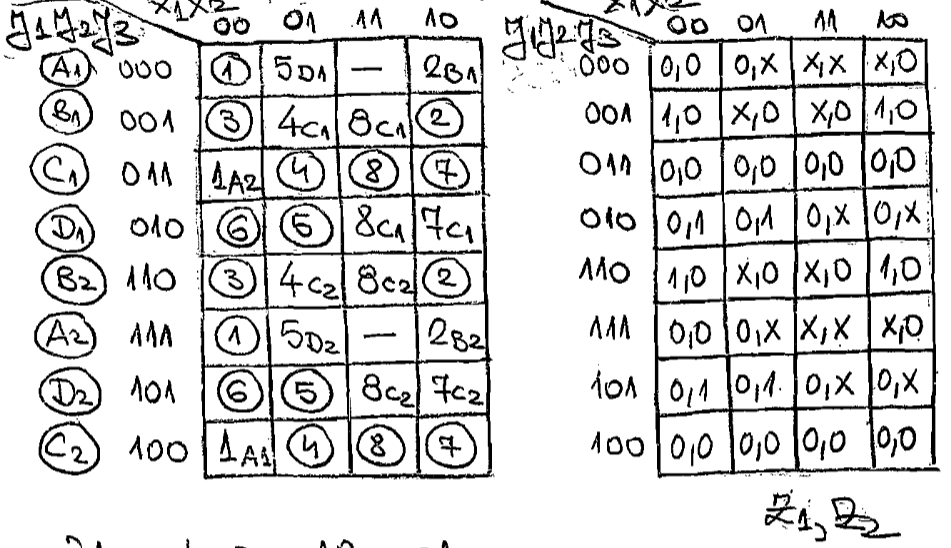 y1y2y3 x1x2 00 01 11 10
A1 000 1 5D1 — 2B1
B1 001 3 4C1 8C1 2
C1 011 1A2 4 8 7
D1 010 6 5 8C1 7C1
B2 110 3 4C2 8C2 2
A2 111 1 5D2 — 2B2
D2 101 6 5 8C2 7C2
C2 100 1A1 4 8 7
y1y2y3 x1x2 00 01 11 10
000 0,0 0,X X,X X,0
001 1,0 X,0 X,0 1,0
011 0,0 0,0 0,0 0,0
010 0,1 0,1 0,X 0,X
110 1,0 X,0 X,0 1,0
111 0,0 0,X X,X X,0
101 0,1 0,1. 0,X 0,X
100 0,0 0,0 0,0 0,0
Z1, Z2